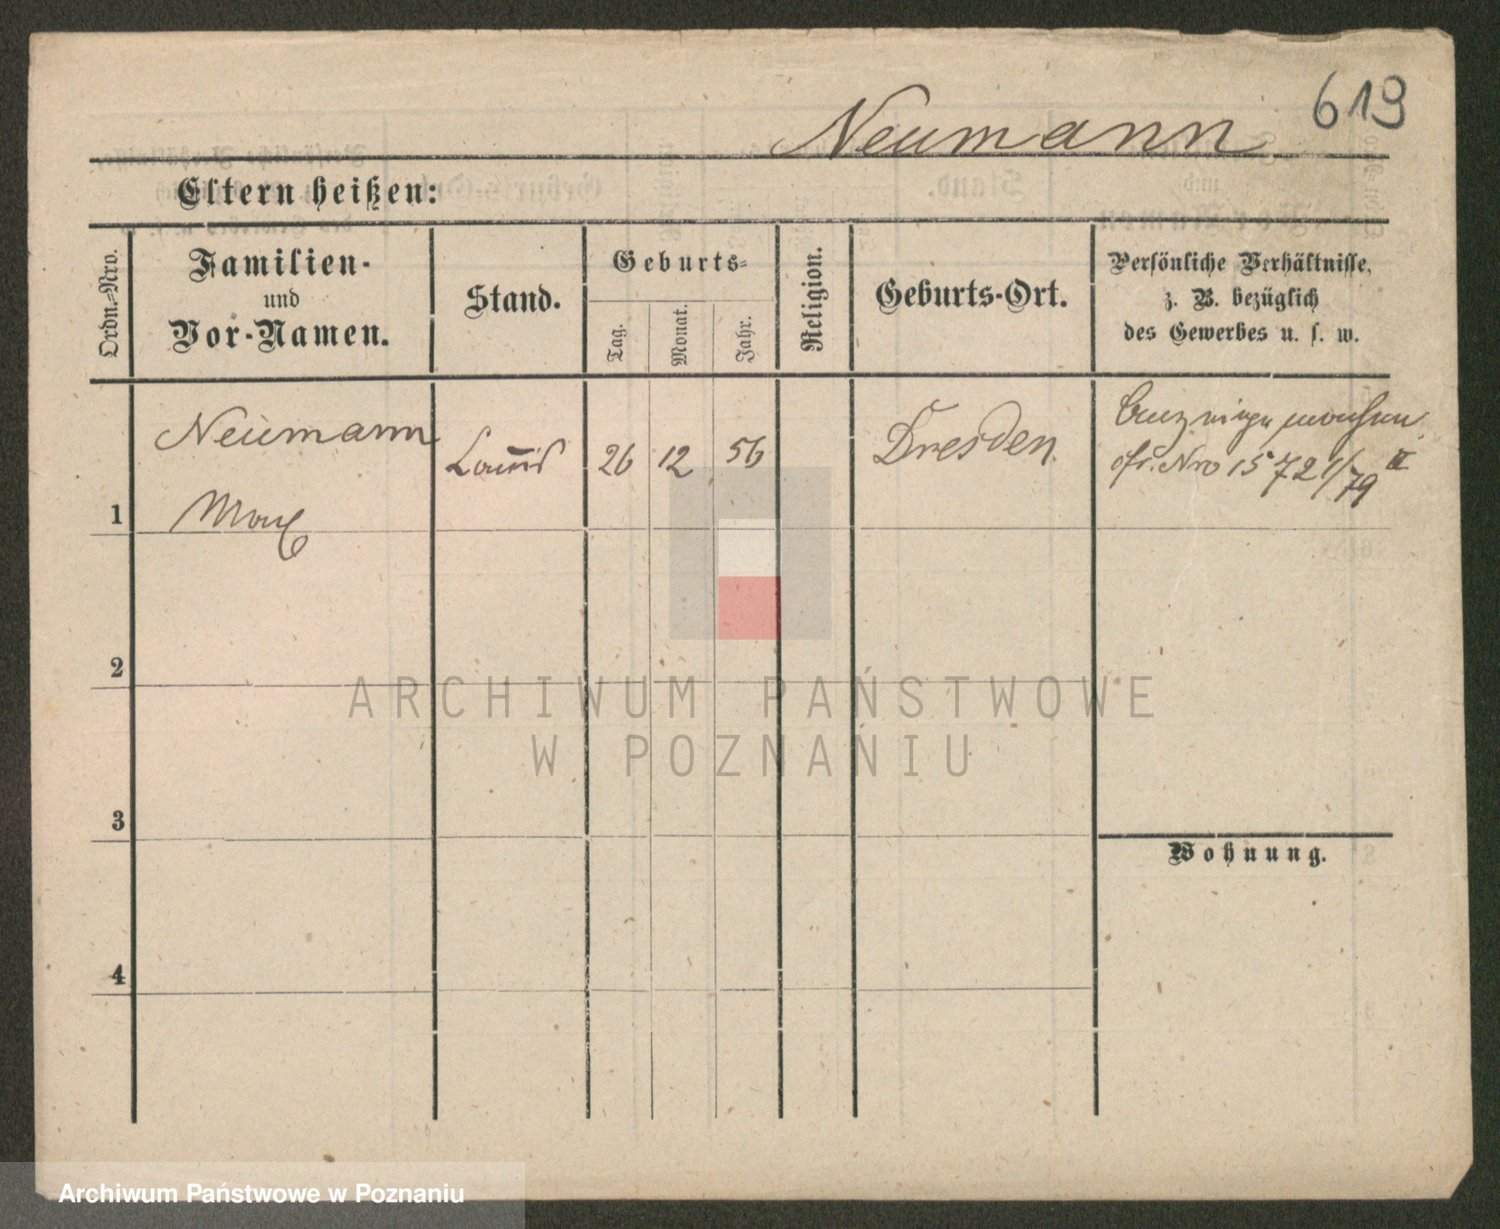 619
Neumann
Eltern heißen:
Ordn.-Nro.
Familien-
und
Vor-Namen.
Stand.
Geburts-
Tag.
Monat.
Jahr.
Religion.
Geburts-Ort.
Persönliche Verhältnisse,
z. B. bezüglich
des Gewerbes u. s. w.
Neumann
26 12 56
Dresden
Nro 15721/79 II
1
Max
2
3
Wohnung.
4
ARCHIWUM PAŃSTWOWE
W POZNANIU
Archiwum Państwowe w Poznaniu